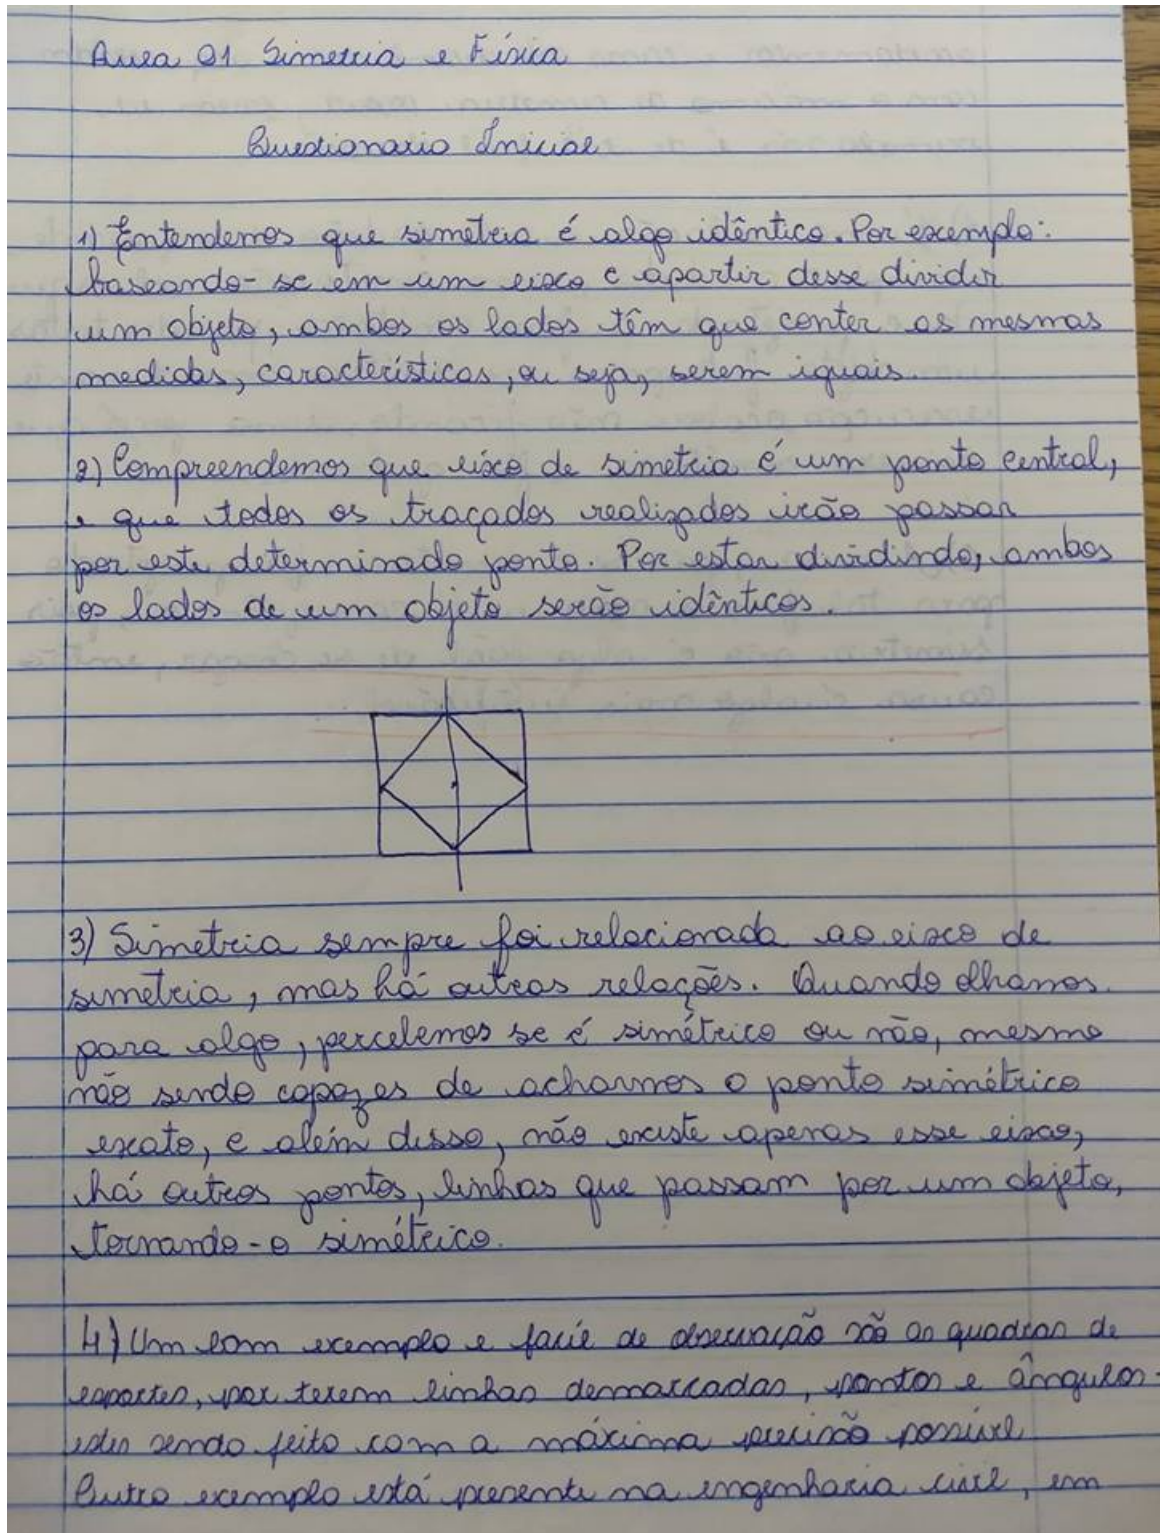 Aula 01 Simetria e Física
Questionario Inicial
1) Entendemos que simetria é algo idêntico. Por exemplo:
baseando-se em um eixo e apartir desse dividir
um objeto, ambos os lados têm que conter as mesmas
medidas, características, ou seja, serem iguais.
2) Compreendemos que eixo de simetria é um ponto central,
e que todos os traçados realizados irão passar
por este determinado ponto. Por estar dividindo, ambos
os lados de um objeto serão idênticos.
3) Simetria sempre foi relacionada ao eixo de
simetria, mas há outras relações. Quando olhamos
para algo, percebemos se é simétrico ou não, mesmo
não sendo capazes de acharmos o ponto simétrico
exato, e além disso, não existe apenas esse eixo,
há outros pontos, linhas que passam por um objeto,
tornando-o simétrico.
4) Um bom exemplo e facil de observação são as quadras de
esportes, por terem linhas demarcadas, pontos e ângulos
estes sendo feito com a máxima precisão possível
Outro exemplo está presente na engenharia civil, em